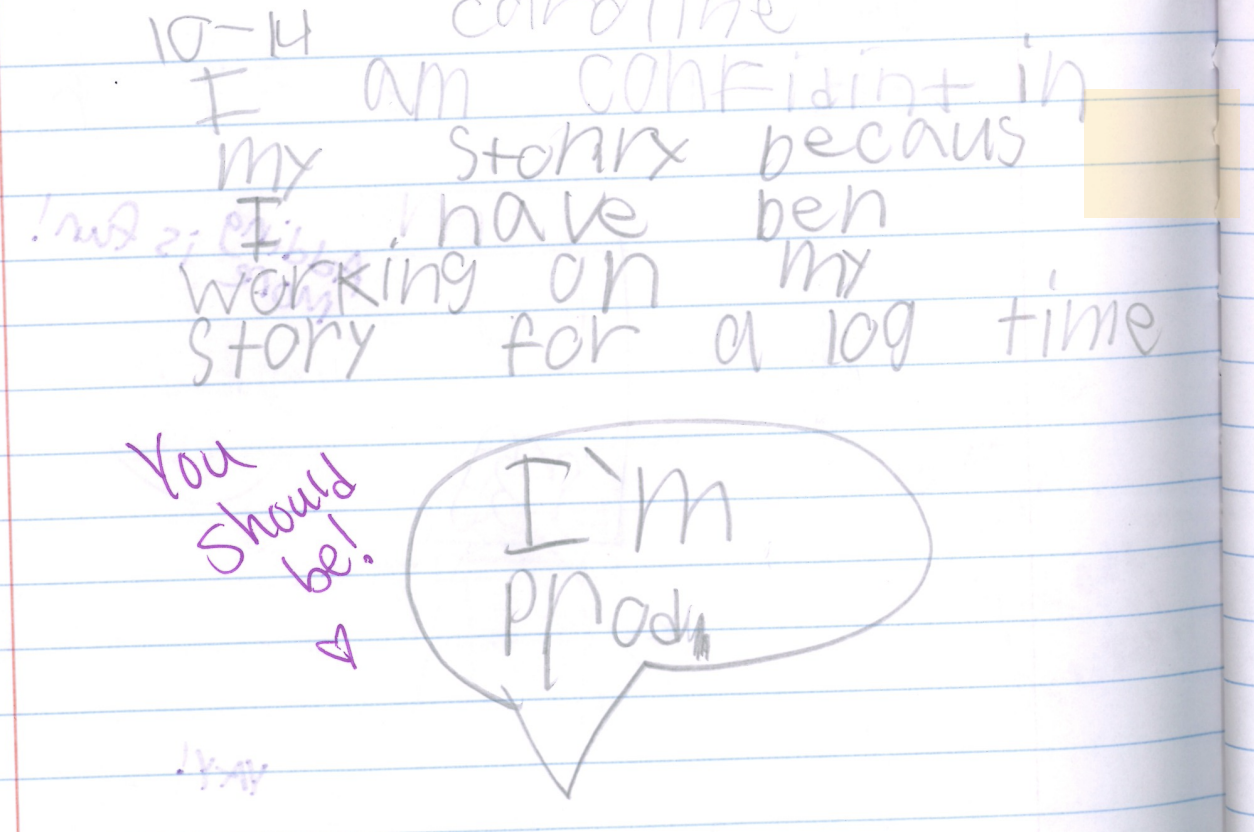 caroline
10-14
I am confidint in
my storry becaus
I have ben
working on my
story for a log time
You
should
be!
I`m
prod